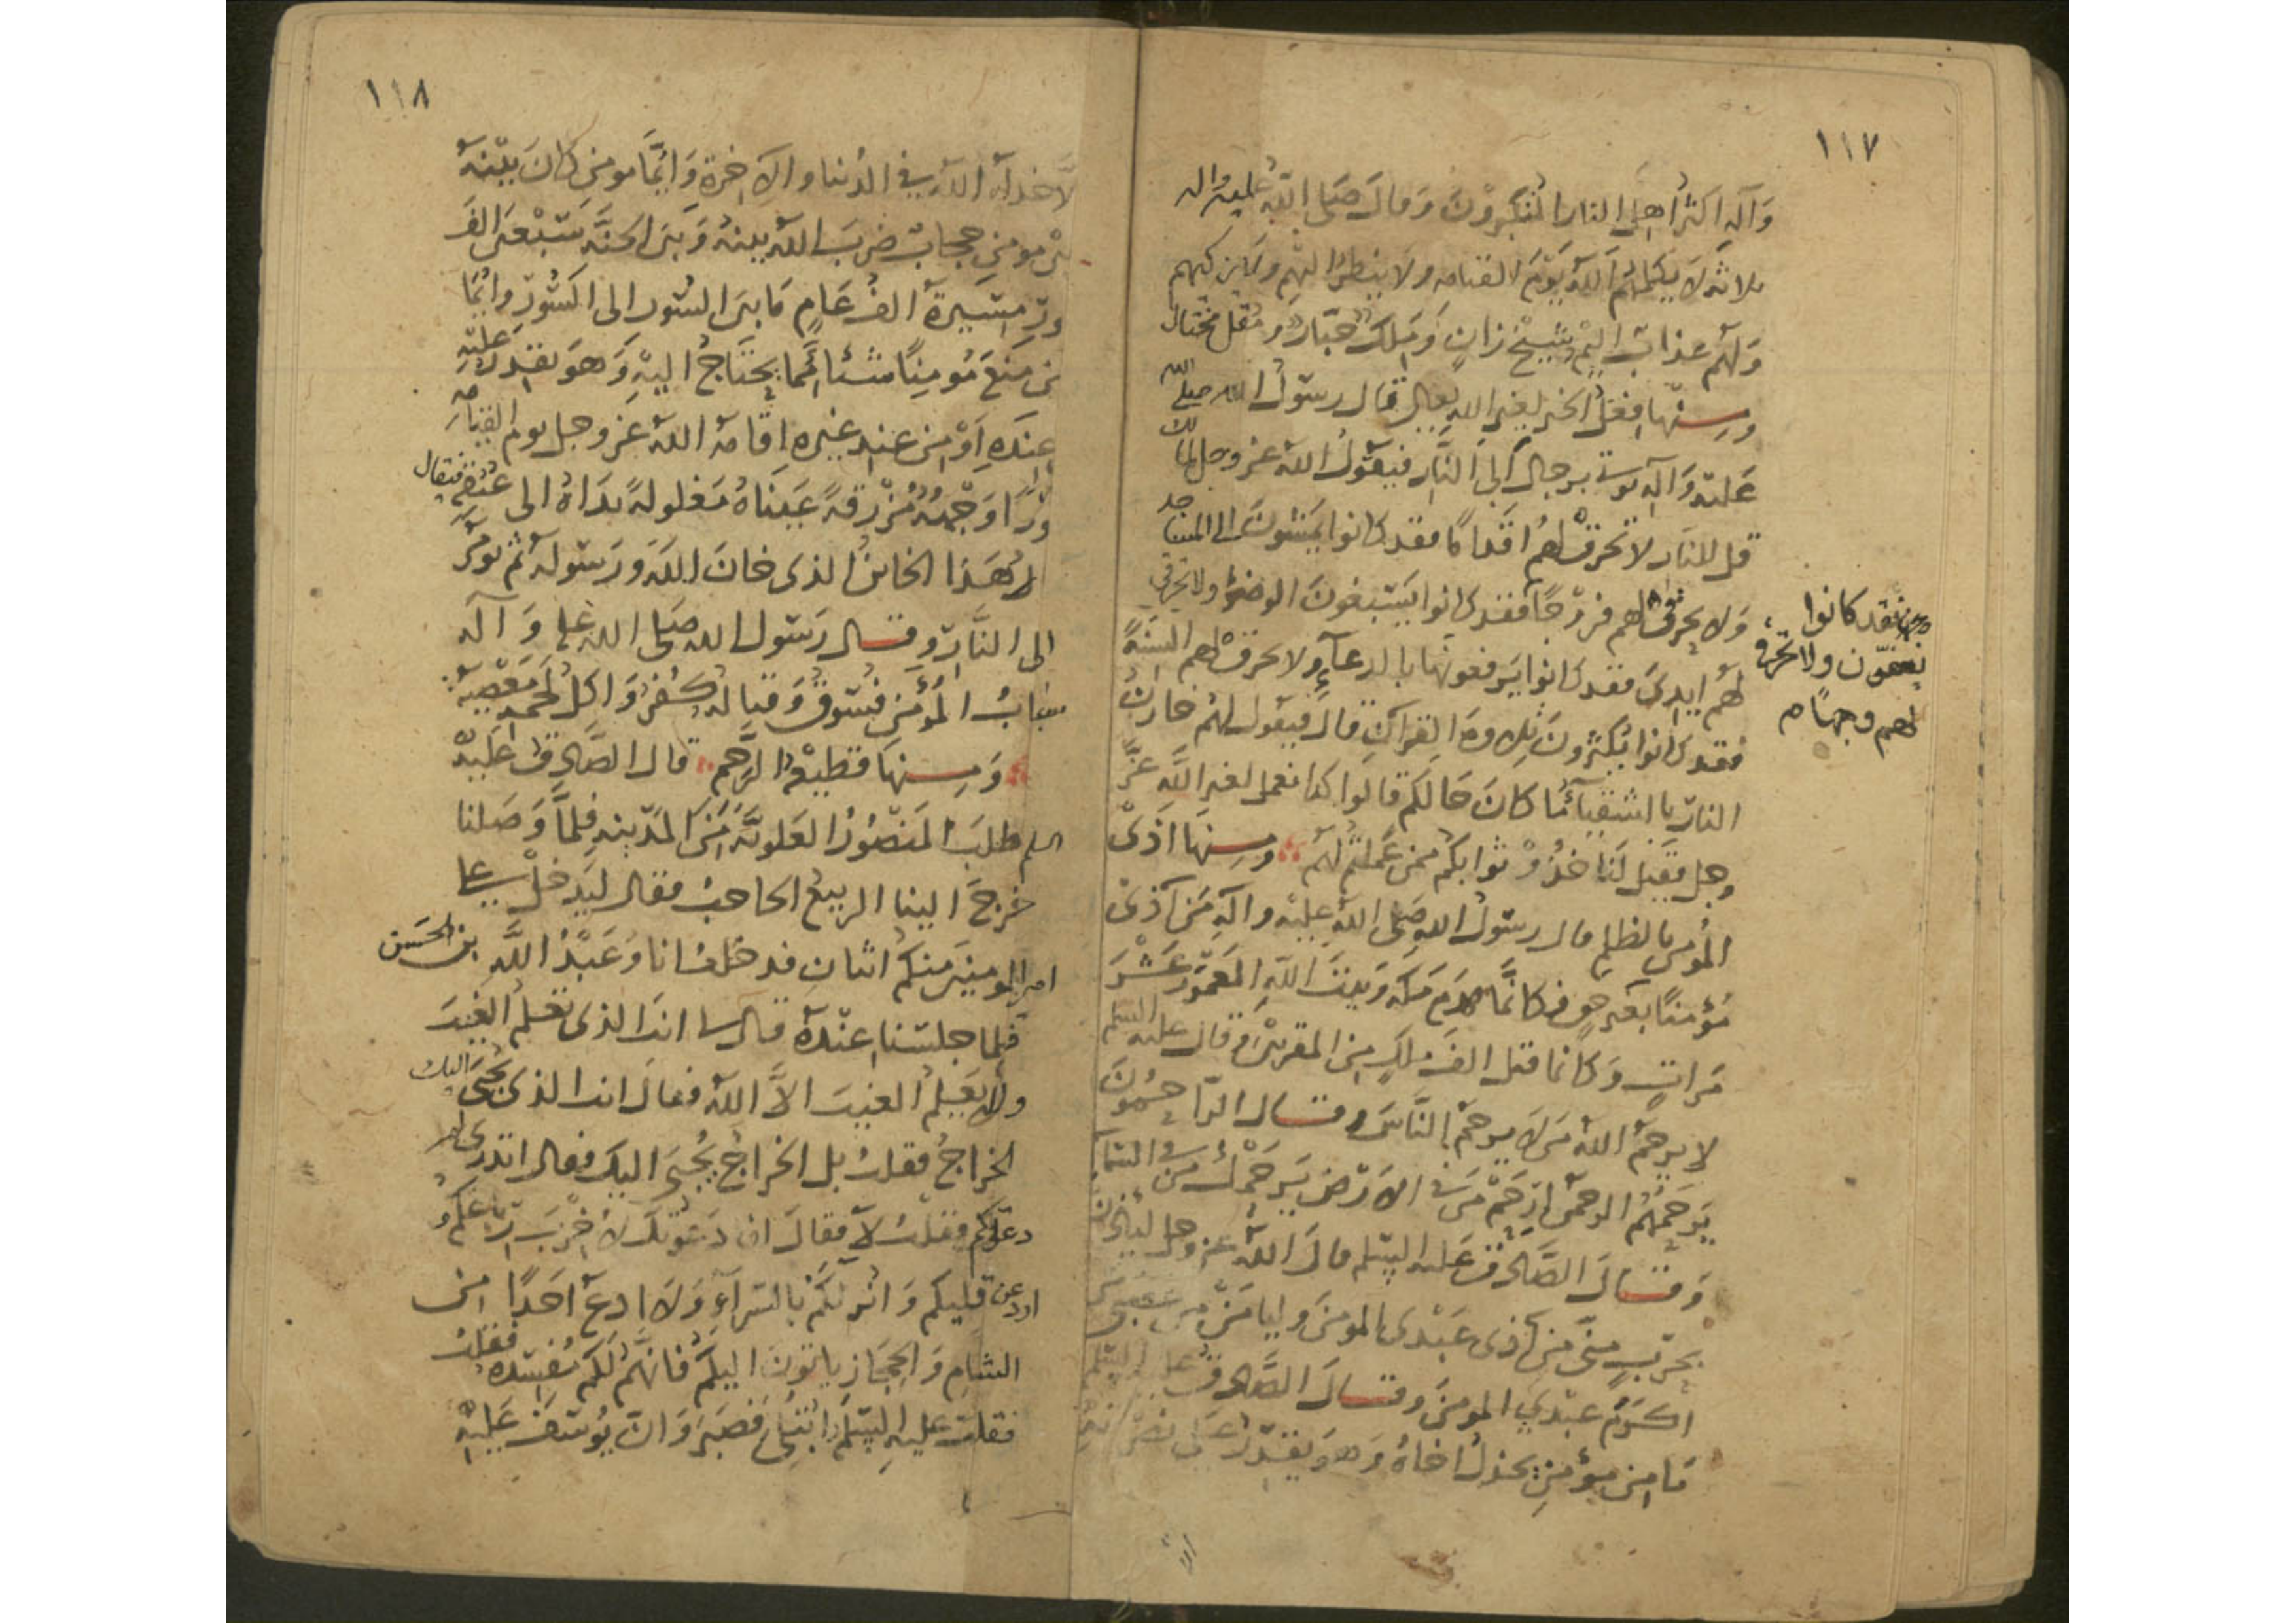 ١١٧
وَآلِه اكثر اهل النار المتكبرون وقال صلى الله عليه واله
ثلاثة لا يكلمهم الله يوم القيامة ولا ينظر اليهم ولا يزكيهم
ولهم عذاب اليم شيخ زان وملك جبار ومقل مختال
ومنها فعل الخير لغير الله تعالى قال رسول الله صلى الله
عليه وآله يؤتى برجال الى النار فيقول الله عز وجل لمالك
قل للنار لا تحرق لهم اقداما فقد كانوا يمشون الى المساجد
ولا تحرق لهم فروجا فقد كانوا يسبغون الوضوء ولا تحرقي
لهم ايدى فقد كانوا يرفعونها بالدعآء ولا تحرق لهم السنة
فقد كانوا يكثرون تلاوة القرآن قال فيقول لهم خازن
النار يا اشقيآء ما كان حالكم قالوا كنا نعمل لغير الله عز
وجل فقيل لنا خذوا ثوابكم ممن عملتم لهم ومنها اذى
المؤمن بالظلم قال رسول الله صلى الله عليه وآله من آذى
مؤمنا بغير حق فكانما هدم مكه وبيت الله المعمور عشر
مرات وكانما قتل الف ملك من المقربين وقال عليه السلم
لا يرحم الله من لا يرحم الناس وقال الراحمون
يرحمهم الرحمن ارحم من في الارض يرحمك من في السمآء
وقال الصادق عليه السلم قال الله عز وجل ليأذن
بحرب منى من آذى عبدى المومن وليامن من غضبى من
اكرم عبدي المومن وقال الصادق عليه السلم
ما من مؤمن يخذل اخاه وهو يقدر على نصرته
فقد كانوا
ولا تحرق
لهم وجها م
١١٨
الا خذله الله في الدنيا والاخرة وايما مومن كان بينه
بين مومن حجاب ضرب الله بينه وبين الجنة سبعين الف
سور مسيرة الف عام ما بين السور الى السور وايما
من منع مؤمنا شيئا مما يحتاج اليه وهو يقدر عليه
عنده او من عند غيره اقامه الله عز وجل يوم القيامه
وجهه مزرقة عيناه مغلولة يداه الى عنقه فيقال
هذا الخائن الذى خان الله ورسوله ثم يومر
الى النار وقال رسول الله صلى الله عليه وآله
سباب المؤمن فسوق وقتاله كفر واكل لحمه معصية
ومنها قطيعة الرحم قال الصادق عليه
السلم طلب المنصور العلوية من المدينه فلما وصلنا
خرج الينا الربيع الحاجب فقال ليدخل على
امير المومنين منكم اثنان فدخلت انا وعبد الله بن الحسن
فلما جلسنا عنده قال انت الذى تعلم الغيب
ولا يعلم الغيب الا الله فقال انت الذى يجبى اليك
الخراج فقلت بل الخراج يجبى اليك فقال اتدرى لم
دعوتكم فقلت لا فقال انى دعوتكم لاخرب رباعكم و
قليبكم وانزلكم بالسراة ولا ادع احدا من
الشام والحجاز ياتون اليكم فانهم لكم مفسده فقلت
فقلت عليه السلم ابتلى فصبر وان يوسف عليه